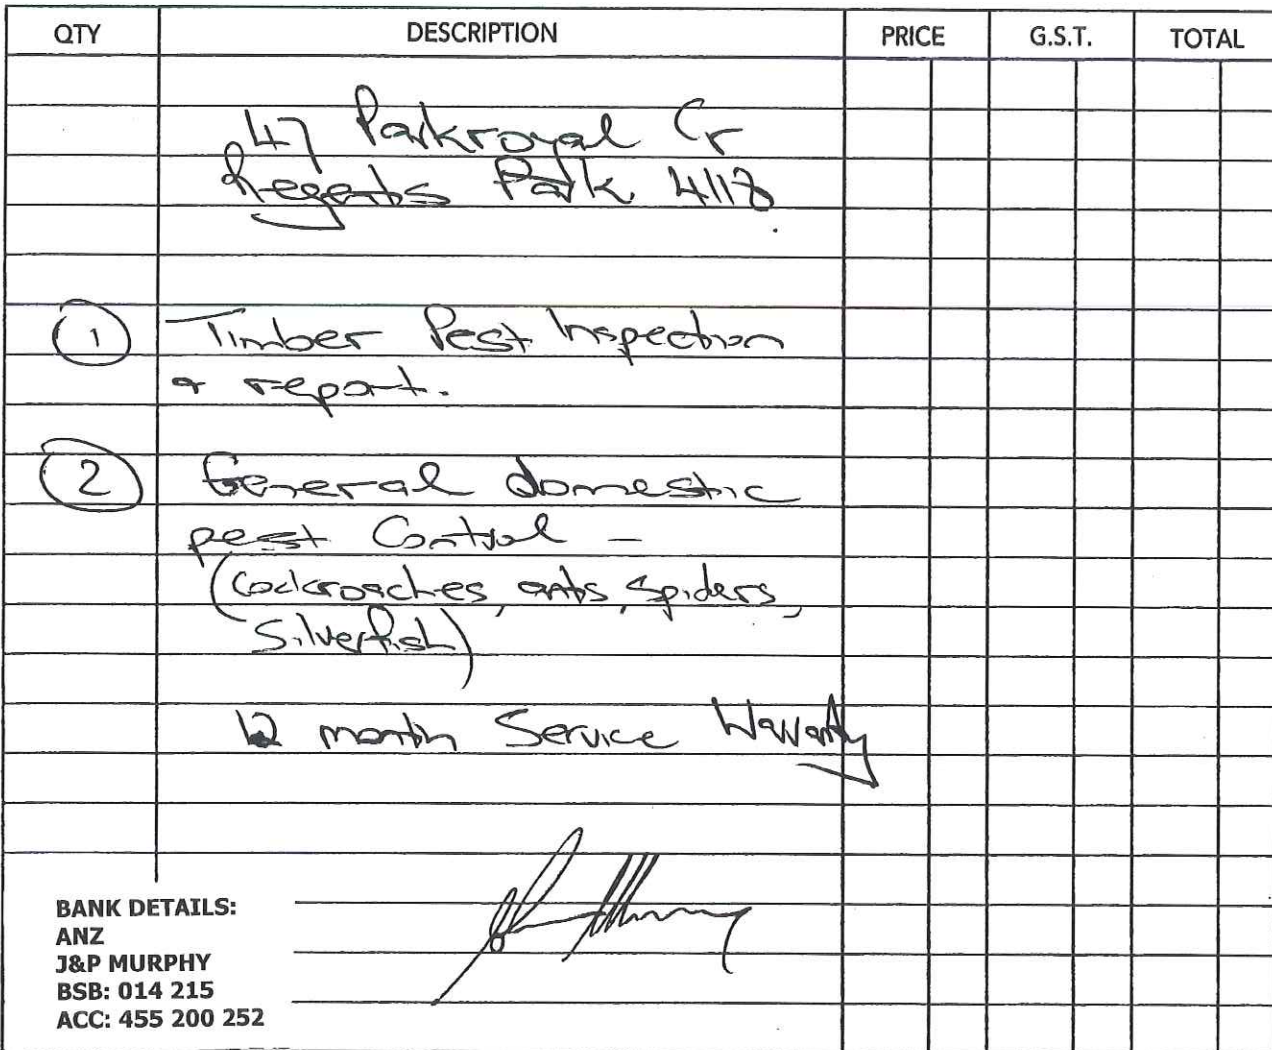 QTY DESCRIPTION PRICE G.S.T. TOTAL
47 Parkroyal Cr
Regents Park 4118
1 Timber Pest Inspection
& report.
2 General domestic
pest Control -
(cockroaches, ants, spiders,
Silverfish)
12 month Service Warranty
BANK DETAILS:
ANZ
J&P MURPHY
BSB: 014 215
ACC: 455 200 252